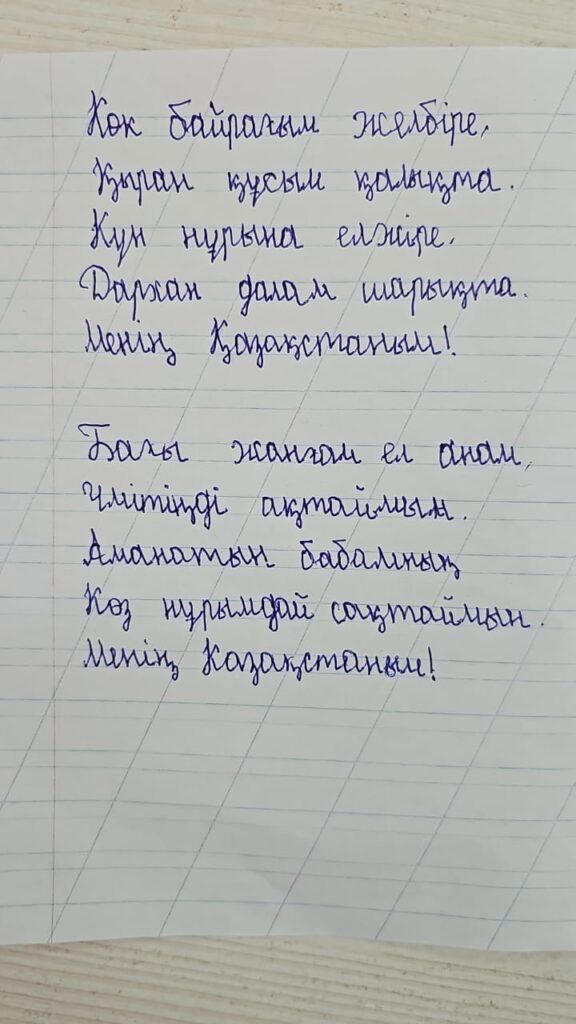 Көк байрағым желбіре,
Қыран құсым қалықта.
Күн нұрына елжіре,
Дархан далам шарықта.
Менің Қазақстаным!
Бағы жанған ел анам,
Үмітіңді ақтаймын.
Аманатын бабамның
Көз нұрымдай сақтаймын.
Менің Казақстаным!